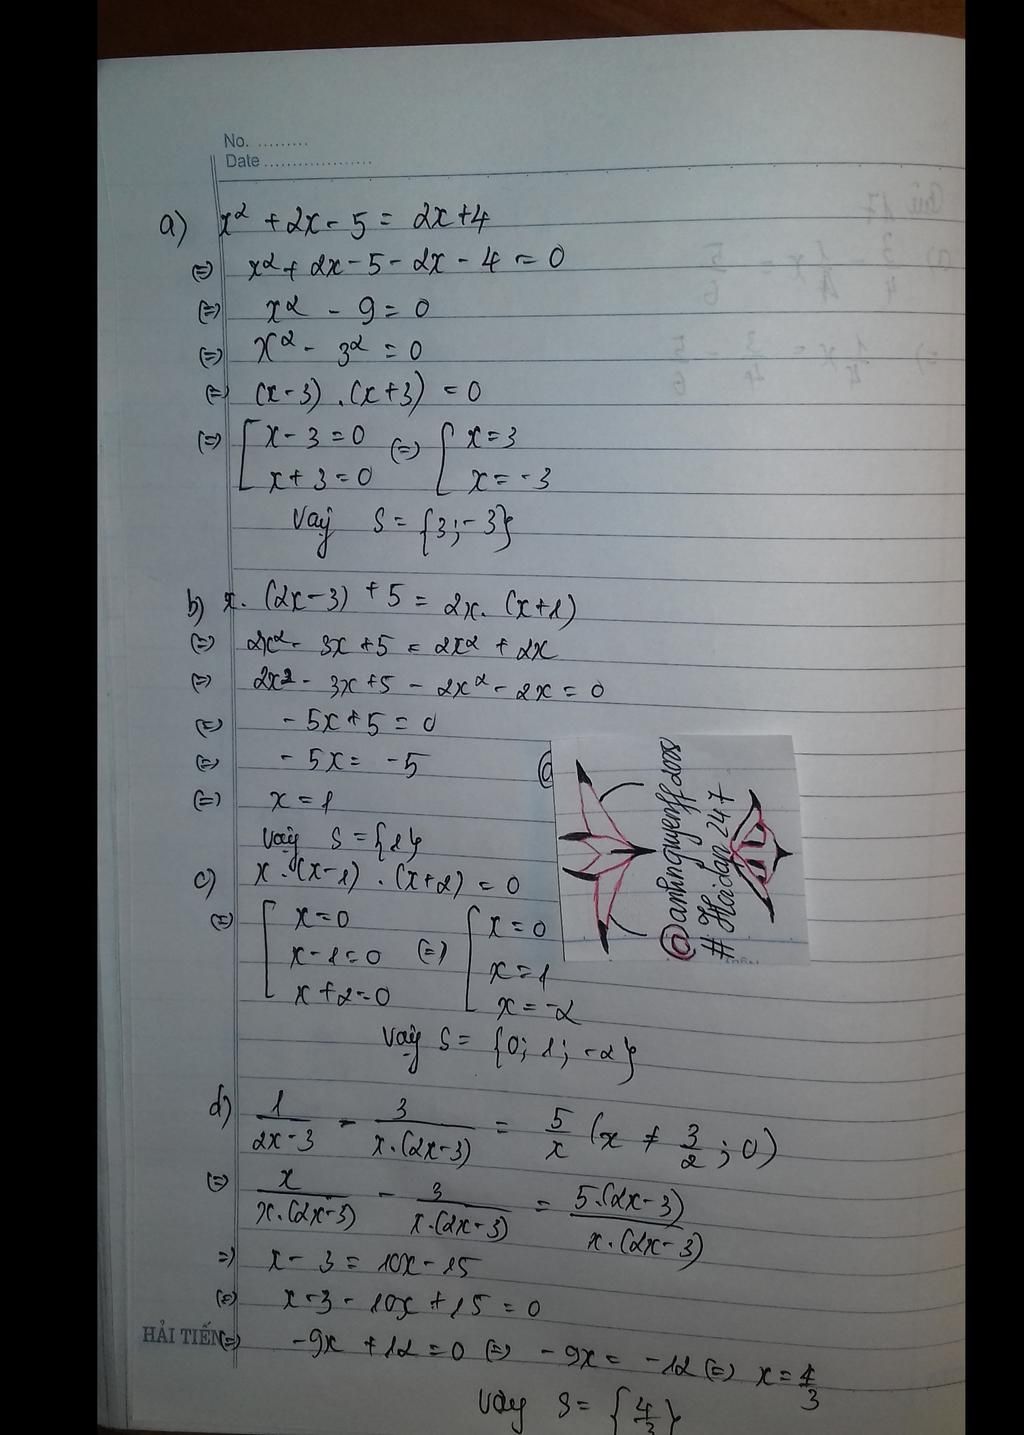 No. .........
Date ...................
a) x² + 2x - 5 = 2x + 4
(=) x² + 2x - 5 - 2x - 4 = 0
(=) x² - 9 = 0
(=) x² - 3² = 0
(=) (x - 3) . (x + 3) = 0
(=) [ x - 3 = 0 (=) [ x = 3
x + 3 = 0 x = -3
Vậy S = {3; -3}
b) x. (2x - 3) + 5 = 2x. (x + 1)
(=) 2x² - 3x + 5 = 2x² + 2x
(=) 2x² - 3x + 5 - 2x² - 2x = 0
(=) - 5x + 5 = 0
(=) - 5x = -5
(=) x = 1
Vậy S = {1}
c) x . (x - 1) . (x + 2) = 0
(=) [ x = 0 (=) [ x = 0
x - 1 = 0 x = 1
x + 2 = 0 x = -2
Vậy S = {0; 1; -2}
@anhnguyenff2008
# Hoidap 247
d) 1/(2x - 3) - 3/(x.(2x - 3)) = 5/x (x ≠ 3/2; 0)
(=) x/(x.(2x - 3)) - 3/(x.(2x - 3)) = 5.(2x - 3)/(x.(2x - 3))
=) x - 3 = 10x - 15
(=) x - 3 - 10x + 15 = 0
HẢI TIẾN (=) -9x + 12 = 0 (=) -9x = -12 (=) x = 4/3
Vậy S = {4/3}